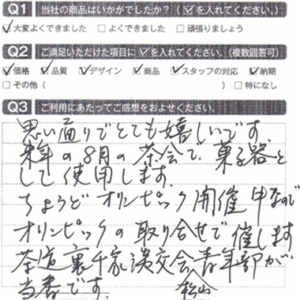 Q1 当社の商品はいかがでしたか？（☑を入れてください。）
☑大変よくできました □よくできました □頑張りましょう
Q2 ご満足いただけた項目に☑を入れてください。（複数回答可）
☑価格 ☑品質 ☑デザイン ☑商品 ☑スタッフの対応 ☑納期
□その他（ ） □特になし
Q3 ご利用にあたってご感想をおよせください。
思い通りでとても嬉しいです。
来年の8月の茶会で、菓子器と
して使用します。
ちょうどオリンピック開催中なので
オリンピックの取り合せで催します
茶道裏千家淡交会青年部が
当番です。